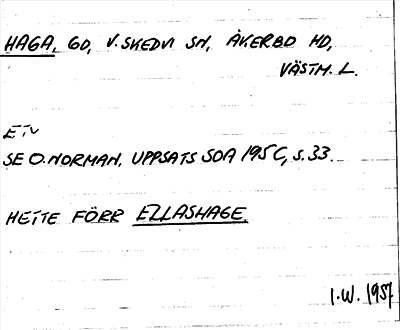 HAGA, GD, V. SKEDVI SN, ÅKERBO HD,
VÄSTM. L.
ETN
SE O. NORMAN, UPPSATS SOA 195C, S. 33.
HETTE FÖRR ELLASHAGE.
I.W. 1957